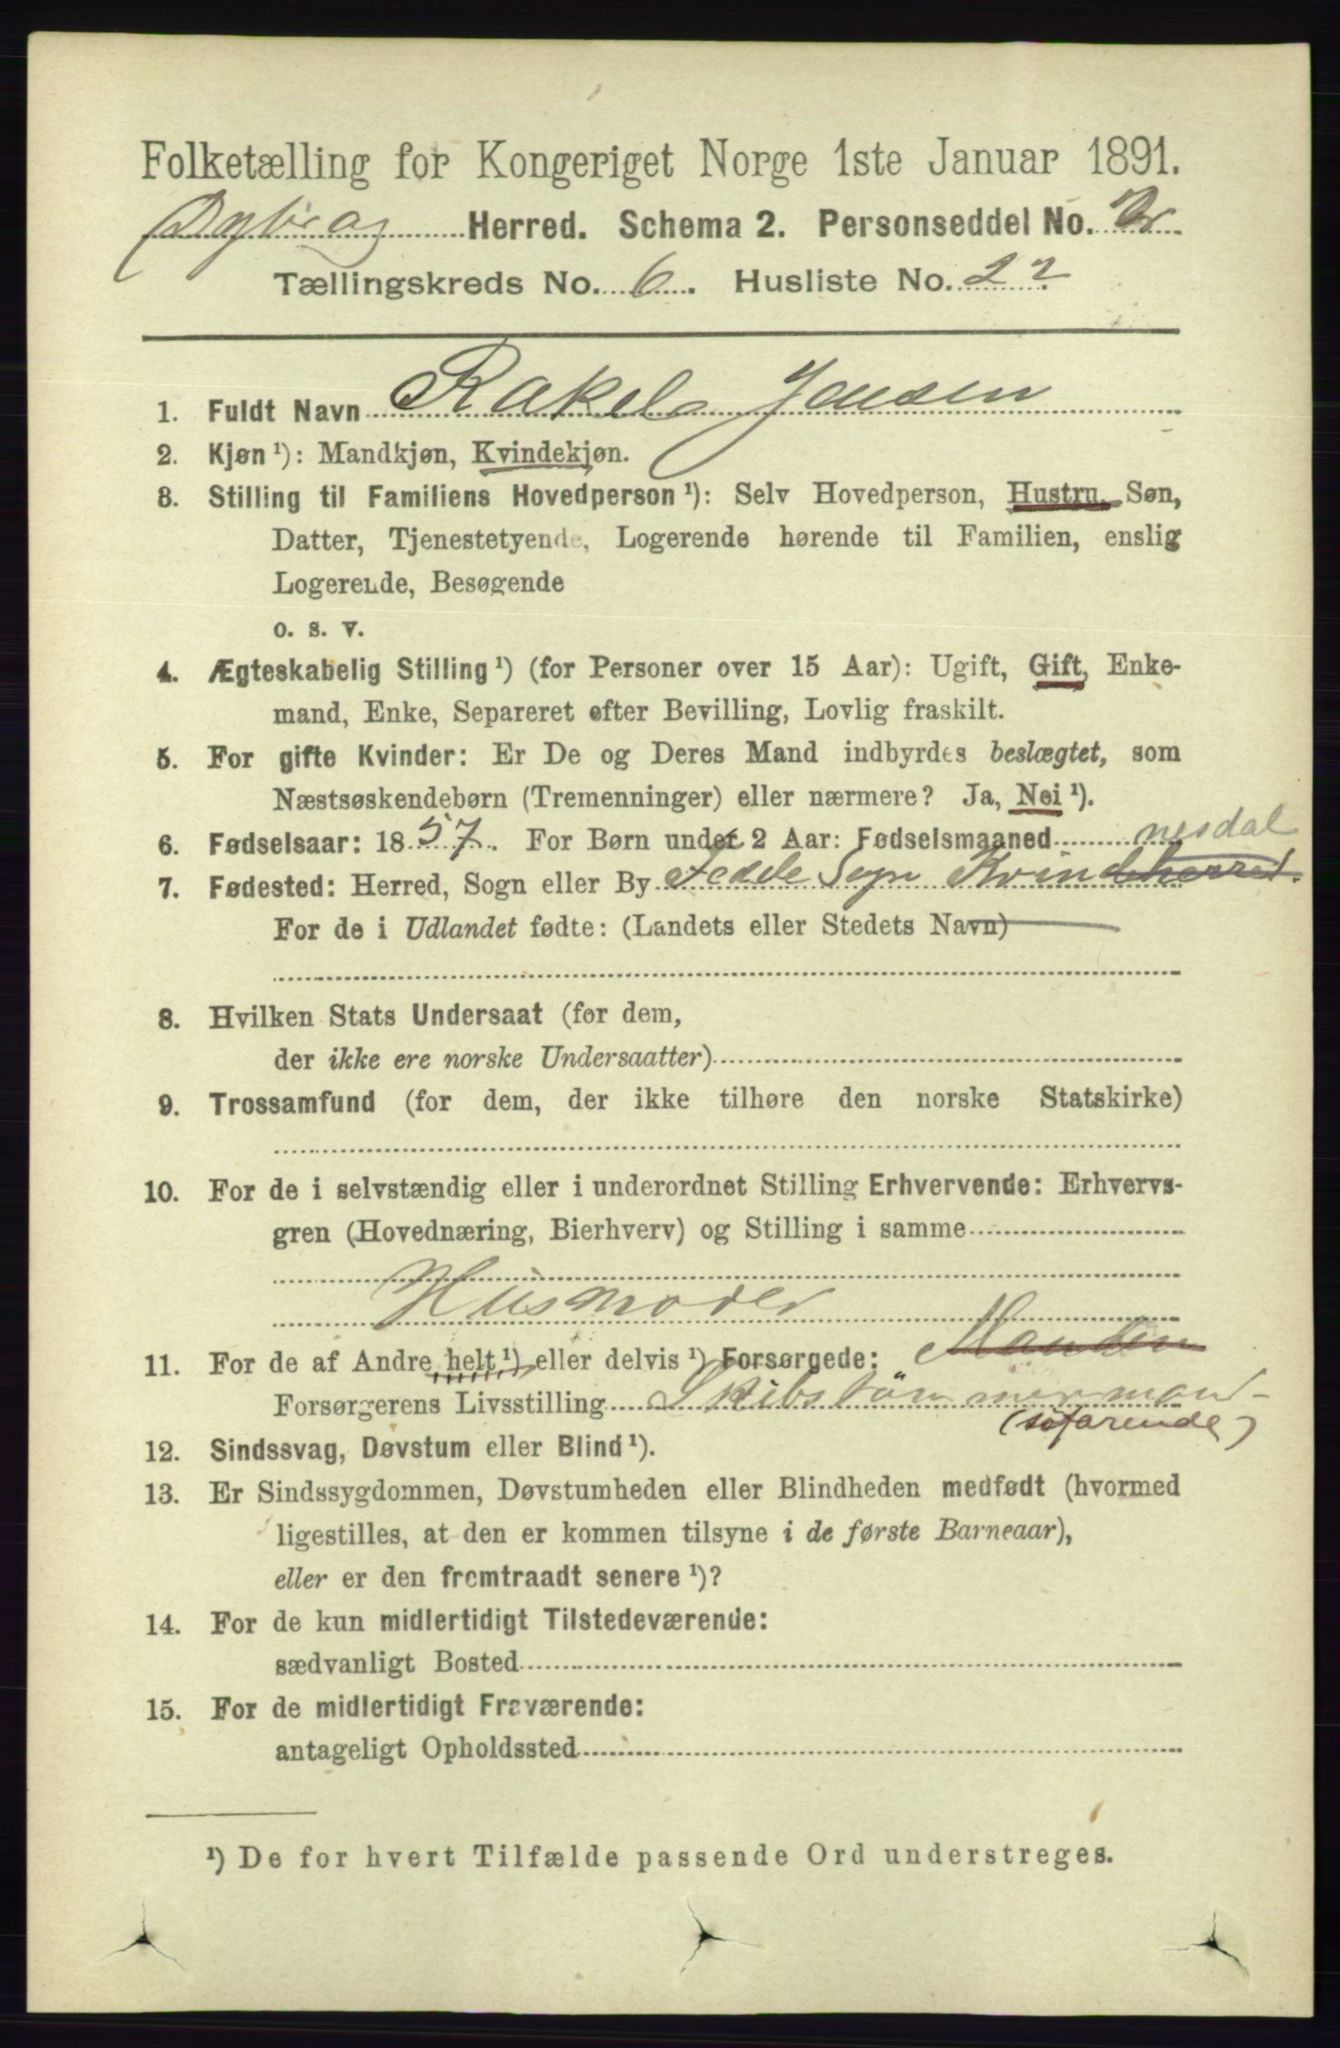 Folketælling for Kongeriget Norge 1ste Januar 1891.
Dybvaag Herred. Schema 2. Personseddel No. 2
Tællingskreds No. 6. Husliste No. 22
1. Fuldt Navn Rakel Jensen
2. Kjøn ¹): Mandkjøn, Kvindekjøn.
3. Stilling til Familiens Hovedperson ¹): Selv Hovedperson, Hustru, Søn,
Datter, Tjenestetyende, Logerende hørende til Familien, enslig
Logerende, Besøgende
o. s. v.
4. Ægteskabelig Stilling ¹) (for Personer over 15 Aar): Ugift, Gift, Enke-
mand, Enke, Separeret efter Bevilling, Lovlig fraskilt.
5. For gifte Kvinder: Er De og Deres Mand indbyrdes beslægtet, som
Næstsøskendebørn (Tremenninger) eller nærmere? Ja, Nei ¹).
6. Fødselsaar: 1857. For Børn under 2 Aar: Fødselsmaaned
nesdal
7. Fødested: Herred, Sogn eller By Fedde Sogn Kvindeherred.
For de i Udlandet fødte: (Landets eller Stedets Navn)
8. Hvilken Stats Undersaat (for dem,
der ikke ere norske Undersaatter)
9. Trossamfund (for dem, der ikke tilhøre den norske Statskirke)
10. For de i selvstændig eller i underordnet Stilling Erhvervende: Erhvervs-
gren (Hovednæring, Bierhverv) og Stilling i samme
Husmoder
11. For de af Andre helt ¹) eller delvis ¹) Forsørgede: Manden
Forsørgerens Livsstilling Skibstømmermand
(søfarende)
12. Sindssvag, Døvstum eller Blind ¹).
13. Er Sindssygdommen, Døvstumheden eller Blindheden medfødt (hvormed
ligestilles, at den er kommen tilsyne i de første Barneaar),
eller er den fremtraadt senere ¹)?
14. For de kun midlertidigt Tilstedeværende:
sædvanligt Bosted
15. For de midlertidigt Fraværende:
antageligt Opholdssted
¹) De for hvert Tilfælde passende Ord understreges.